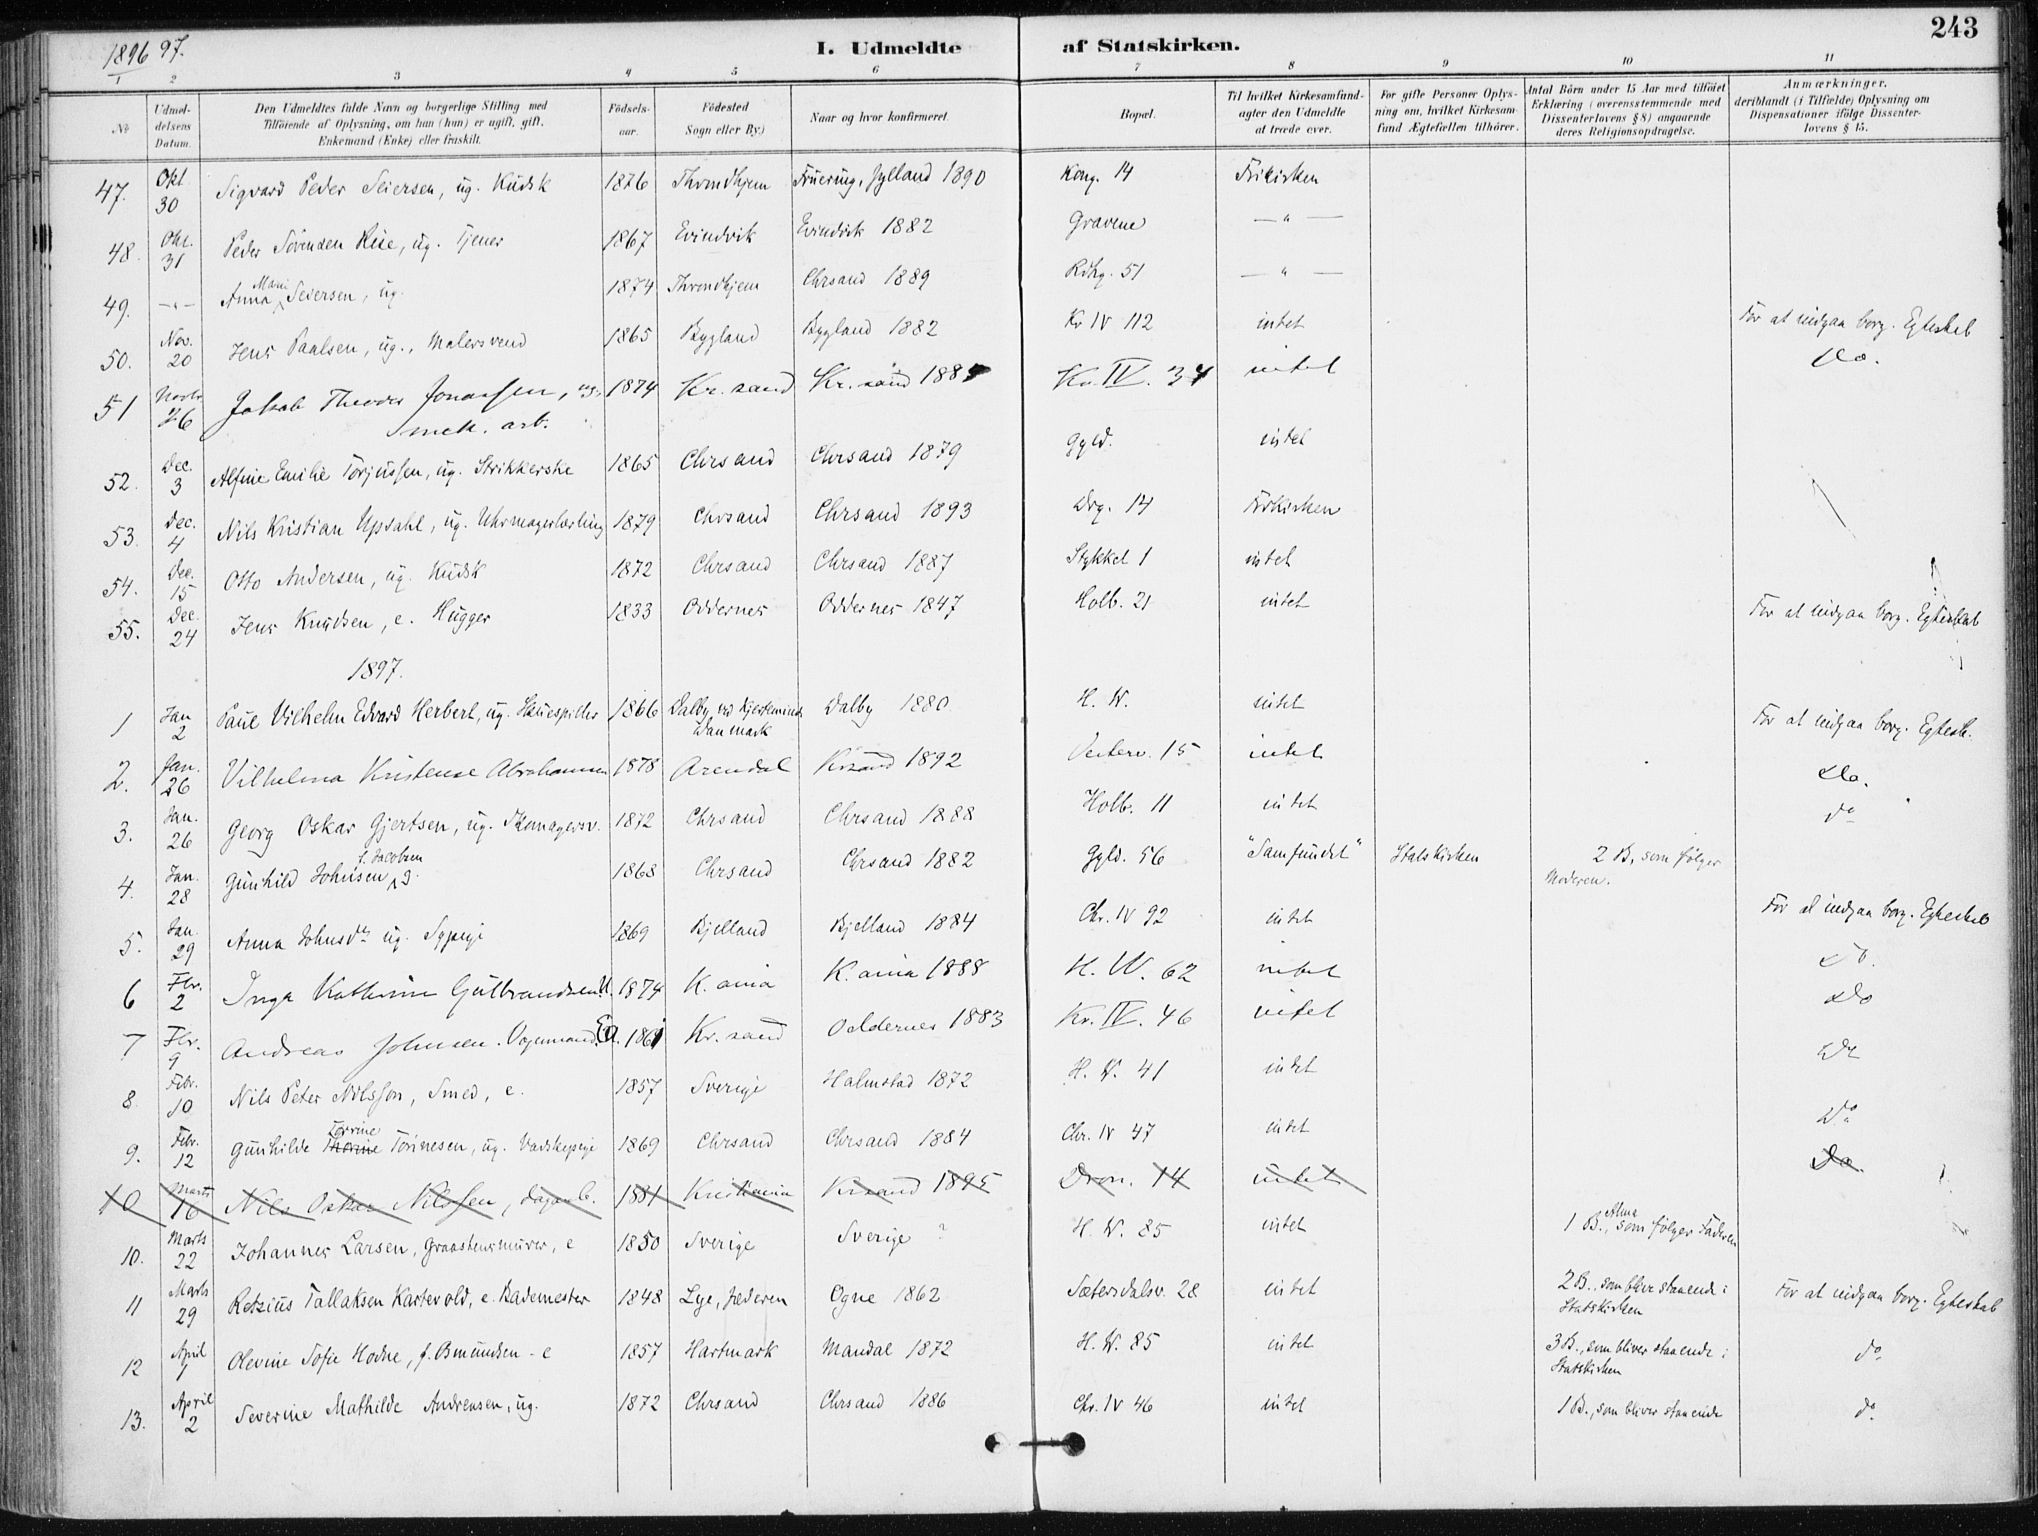 1896 97.
I. Udmeldte af Statskirken.
243
1 2 3 4 5 6 7 8 9 10 11
No
Udmel-
delsens
Datum.
Den Udmeldtes fulde Navn og borgerlige Stilling med
Tilföiende af Oplysning, om han (hun) er ugift, gift,
Enkemand (Enke) eller fraskilt.
Födsels-
aar.
Födested
Sogn eller By.)
Naar og hvor konfirmeret.
Bopæl.
Til hvilket Kirkesamfund-
agter den Udmeldte
at træde over.
For gifte Personer Oplys-
ning om, hvilket Kirkesam-
fund Ægtefællen tilhörer.
Antal Börn under 15 Aar med tilföiet
Erklæring (overensstemmende med
Dissenterlovens § 8) angaaende
deres Religionsopdragelse.
Anmærkninger.
deriblandt (i Tilfælde) Oplysning om
Dispensationer ifölge Dissenter-
lovens § 15.
47. Okt. 30 Sigvard Peder Seiersen, ug. Kudsk 1876 Throndhjem Fruering, Jylland 1890 Kong. 14 Frikirken
48. Okt. 31 Peder Sörensen Rise, ug. Tjener 1867 Evindvik Evindvik 1882 Gravene — " —
49. — " — Anna Marie Seiersen, ug. 1874 Throndhjem Chrsand 1889 Rdhg. 51 — " —
50. Nov. 20 Jens Paalsen, ug., Malersvend 1865 Bygland Bygland 1882 Kv IV 112 intet For at indgaa borg. Egteskab
51 Novbr 26 Jakob Theodor Jonassen, ug. 1874 Kr. sand Kr. sand 1889 Kv. IV. 34 intet do.
mek. arb.
52. Dec. 3 Alfine Emilie Torjussen, ug. Strikkerske 1865 Chrsand Chrsand 1879 Gyld. intet
53. Dec. 4 Nils Kristian Updahl, ug. Uhrmagerlærling 1879 Chrsand Chrsand 1893 Drg. 14 Frikirken
54. Dec. 15 Otto Andersen, ug. Kudsk 1872 Chrsand Chrsand 1887 Stykket 1 intet
55. Dec. 24 Jens Knudsen, e. Hugger 1833 Oddernes Oddernes 1847 Holb. 21 intet For at indgaa borg. Egteskab
1897.
1 Jan 2 Paul Vilhelm Edvard Herbert, ug. Skuespiller 1866 Dalby ved Kjerteminde Danmark Dalby 1880 H. W. intet For at indgaa borg. Egtesk.
2. Jan. 26 Vilhelma Kristense Abrahamsen 1878 Arendal Krsand 1892 Vesterv. 15 intet do.
3. Jan. 26 Georg Oskar Gjertsen, ug. Skomagersv. 1872 Chrsand Chrsand 1888 Holb. 11 intet do
4. Jan. 28 Gunhild Johnsen f. Jacobsen g. 1868 Chrsand Chrsand 1882 Gyld. 56 "Samfundet" Statskirken 2 B., som følger
Moderen.
5. Jan 29 Anna Johnsdtr ug. Sypige 1869 Bjelland Bjelland 1884 Chr. IV 92 intet For at indgaa borg. Egteskab
6 Fbr. 2 Inga Kathrine Gulbrandsen U. 1874 K. ania K. ania 1888 H. W. 62 intet do.
7 Fbr. 9 Andreas Johnsen. Vognmand. 1861 Kr. sand Oddernes 1883 Kv. IV. 46 intet do
8. Febr. 10 Nils Peter Nilsson, Smed, e. 1857 Sverige Halmstad 1872 H. W. 41 intet do
9. Febr. 12 Gunhilde Thorine Torrine Tönnesen, ug. Vaskepige 1869 Chrsand Chrsand 1884 Chr. IV 47 intet do
10 Marts 16 Nils Oskar Nilssen, dagarb. 1881 Kristiania Krsand 1895 Dron. 14 intet do.
10. Marts 22 Johannes Larsen, Graastensmurer, e 1850 Sverige Sverige ? H. W. 85 intet 1 B., Alma som følger Faderen
11 Marts 29 Retzius Tallaksen Kartevold, e. Bademester 1848 Lye, Jæderen Ogne 1862 Sætersdalsv. 28 intet 2 B., som blive staaende i
Statskirken For at indgaa borg. Egteskab
12 April 1 Olevine Sofie Hodne, f. Omundsen - e 1857 Hartmark Mandal 1872 H. W. 85 intet 3 B., som bliver staaende i
Statskirken do.
13. April 2 Severine Mathilde Andreasen, ug. 1872 Chrsand Chrsand 1886 Chr. IV 46 intet 1 B., som bliver staaende do.